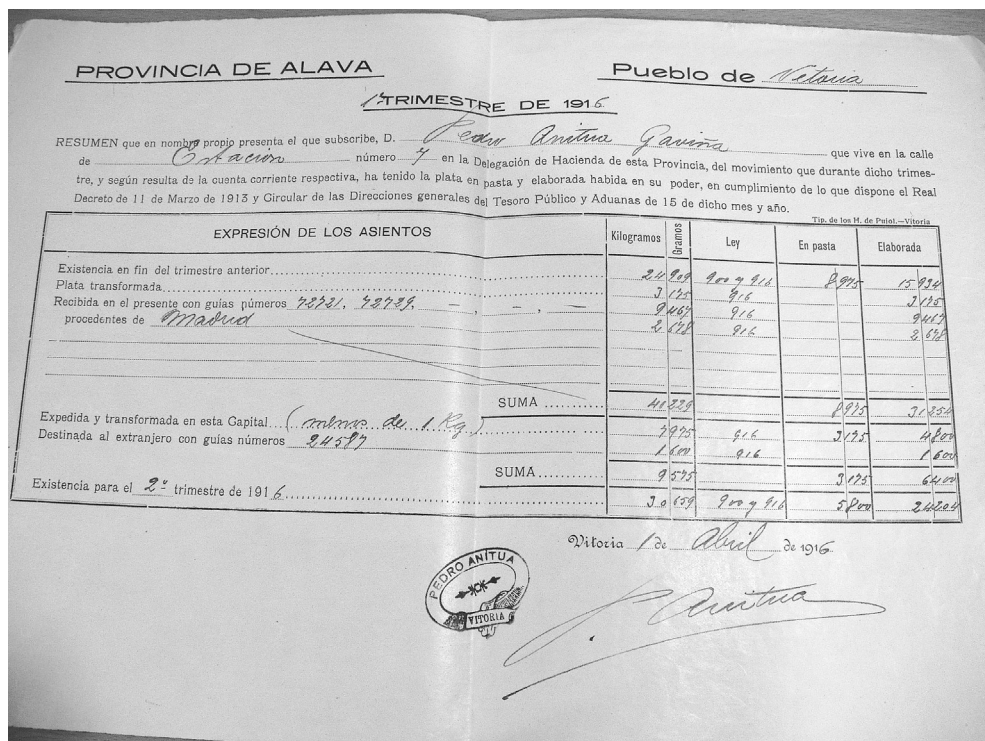 PROVINCIA DE ALAVA
Pueblo de Vitoria
1er TRIMESTRE DE 1916
RESUMEN que en nombre propio presenta el que subscribe, D. Pedro Anitua Gaviña que vive en la calle
de Estación número 7 en la Delegación de Hacienda de esta Provincia, del movimiento que durante dicho trimes-
tre, y según resulta de la cuenta corriente respectiva, ha tenido la plata en pasta y elaborada habida en su poder, en cumplimiento de lo que dispone el Real
Decreto de 11 de Marzo de 1913 y Circular de las Direcciones generales del Tesoro Público y Aduanas de 15 de dicho mes y año.
Tip. de los H. de Pujol.—Vitoria
EXPRESIÓN DE LOS ASIENTOS Kilogramos Gramos Ley En pasta Elaborada
Existencia en fin del trimestre anterior 24 909 900 y 916 8 975 15 934
Plata transformada 3 175 916 3 175
Recibida en el presente con guías números 72721. 72729. 9 467 916 9 467
procedentes de Madrid 2 678 916 2 678
SUMA 40 229 8 975 31 254
Expedida y transformada en esta Capital (menos de 1 Kg) 7 975 916 3 175 4 800
Destinada al extranjero con guías números 24587 1 600 916 1 600
SUMA 9 575 3 175 6 400
Existencia para el 2º trimestre de 1916 30 659 900 y 916 5 800 24 204
Vitoria 1 de Abril de 1916
PEDRO ANÍTUA
VITORIA
P. Anitua